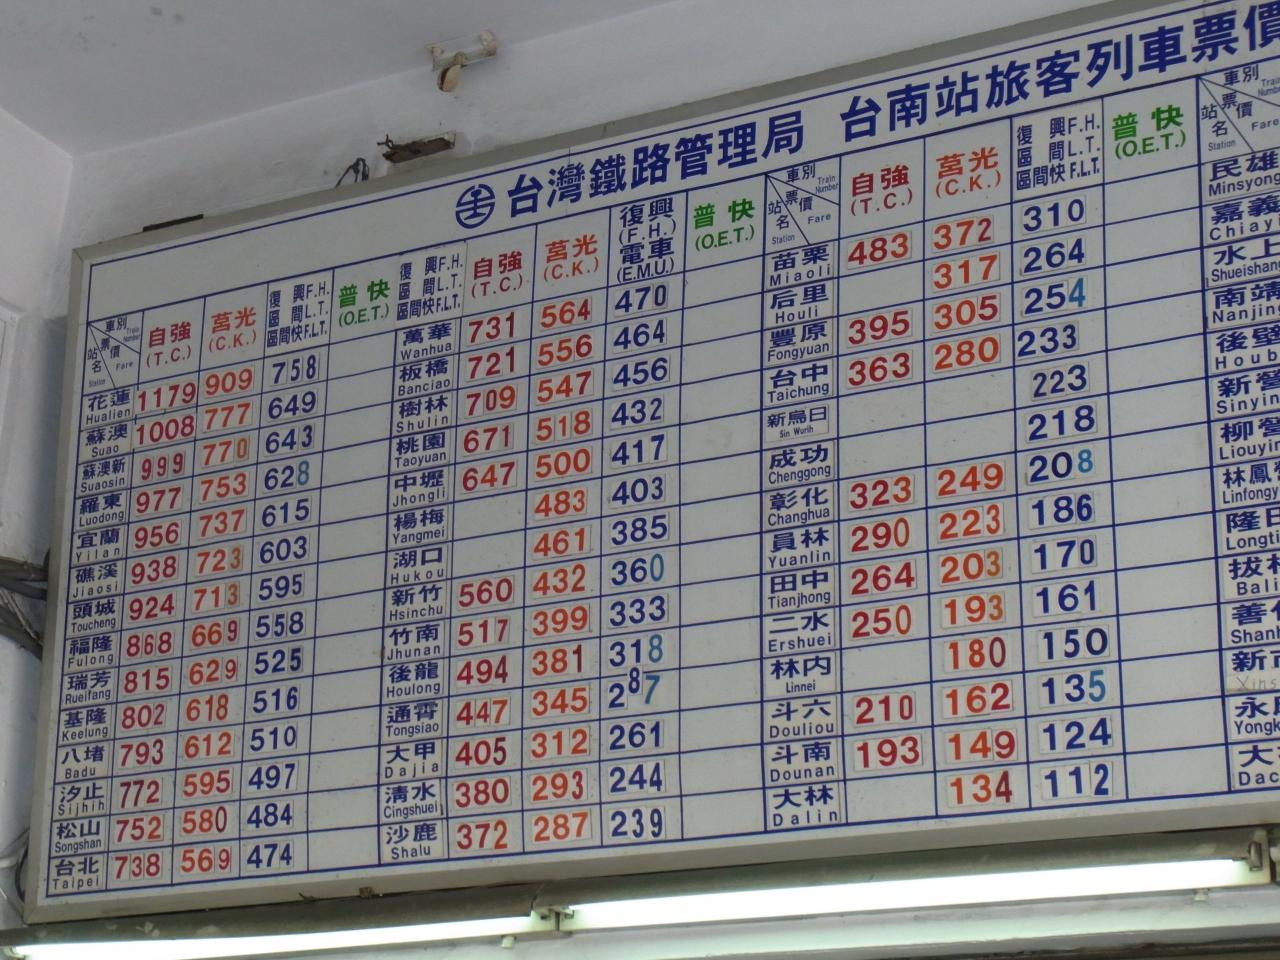 台灣鐵路管理局 台南站旅客列車票價
車別 Train Number
票價 Fare
站名 Station
自強 (T.C.)
莒光 (C.K.)
復興 F.H.
區間 L.T.
區間快 F.L.T.
普快 (O.E.T.)
花蓮 Hualien 1179 909 758
蘇澳 Suao 1008 777 649
蘇澳新 Suaosin 999 770 643
羅東 Luodong 977 753 628
宜蘭 Yilan 956 737 615
礁溪 Jiaosi 938 723 603
頭城 Toucheng 924 713 595
福隆 Fulong 868 669 558
瑞芳 Rueifang 815 629 525
基隆 Keelung 802 618 516
八堵 Badu 793 612 510
汐止 Sijhih 772 595 497
松山 Songshan 752 580 484
台北 Taipei 738 569 474
復興 F.H.
區間 L.T.
區間快 F.L.T.
自強 (T.C.)
莒光 (C.K.)
復興 (F.H.)
電車 (E.M.U.)
普快 (O.E.T.)
萬華 Wanhua 731 564 470
板橋 Banciao 721 556 464
樹林 Shulin 709 547 456
桃園 Taoyuan 671 518 432
中壢 Jhongli 647 500 417
楊梅 Yangmei 483 403
湖口 Hukou 461 385
新竹 Hsinchu 560 432 360
竹南 Jhunan 517 399 333
後龍 Houlong 494 381 318
通霄 Tongsiao 447 345 287
大甲 Dajia 405 312 261
清水 Cingshuei 380 293 244
沙鹿 Shalu 372 287 239
車別 Train Number
票價 Fare
站名 Station
自強 (T.C.)
莒光 (C.K.)
復興 F.H.
區間 L.T.
區間快 F.L.T.
普快 (O.E.T.)
苗栗 Miaoli 483 372 310
后里 Houli 317 264
豐原 Fongyuan 395 305 254
台中 Taichung 363 280 233
新烏日 Sin Wurih 223
成功 Chenggong 218
彰化 Changhua 323 249 208
員林 Yuanlin 290 223 186
田中 Tianjhong 264 203 170
二水 Ershuei 250 193 161
林內 Linnei 180 150
斗六 Douliou 210 162 135
斗南 Dounan 193 149 124
大林 Dalin 134 112
車別 Train Number
票價 Fare
站名 Station
民雄 Minsyong
嘉義 Chiay
水上 Shueishang
南靖 Nanjin
後壁 Houb
新營 Sinyin
柳營 Liouyin
林鳳 Linfongy
隆 Longti
拔 Bali
善 Shan
新市 Xins
永 Yongk
大 Dac